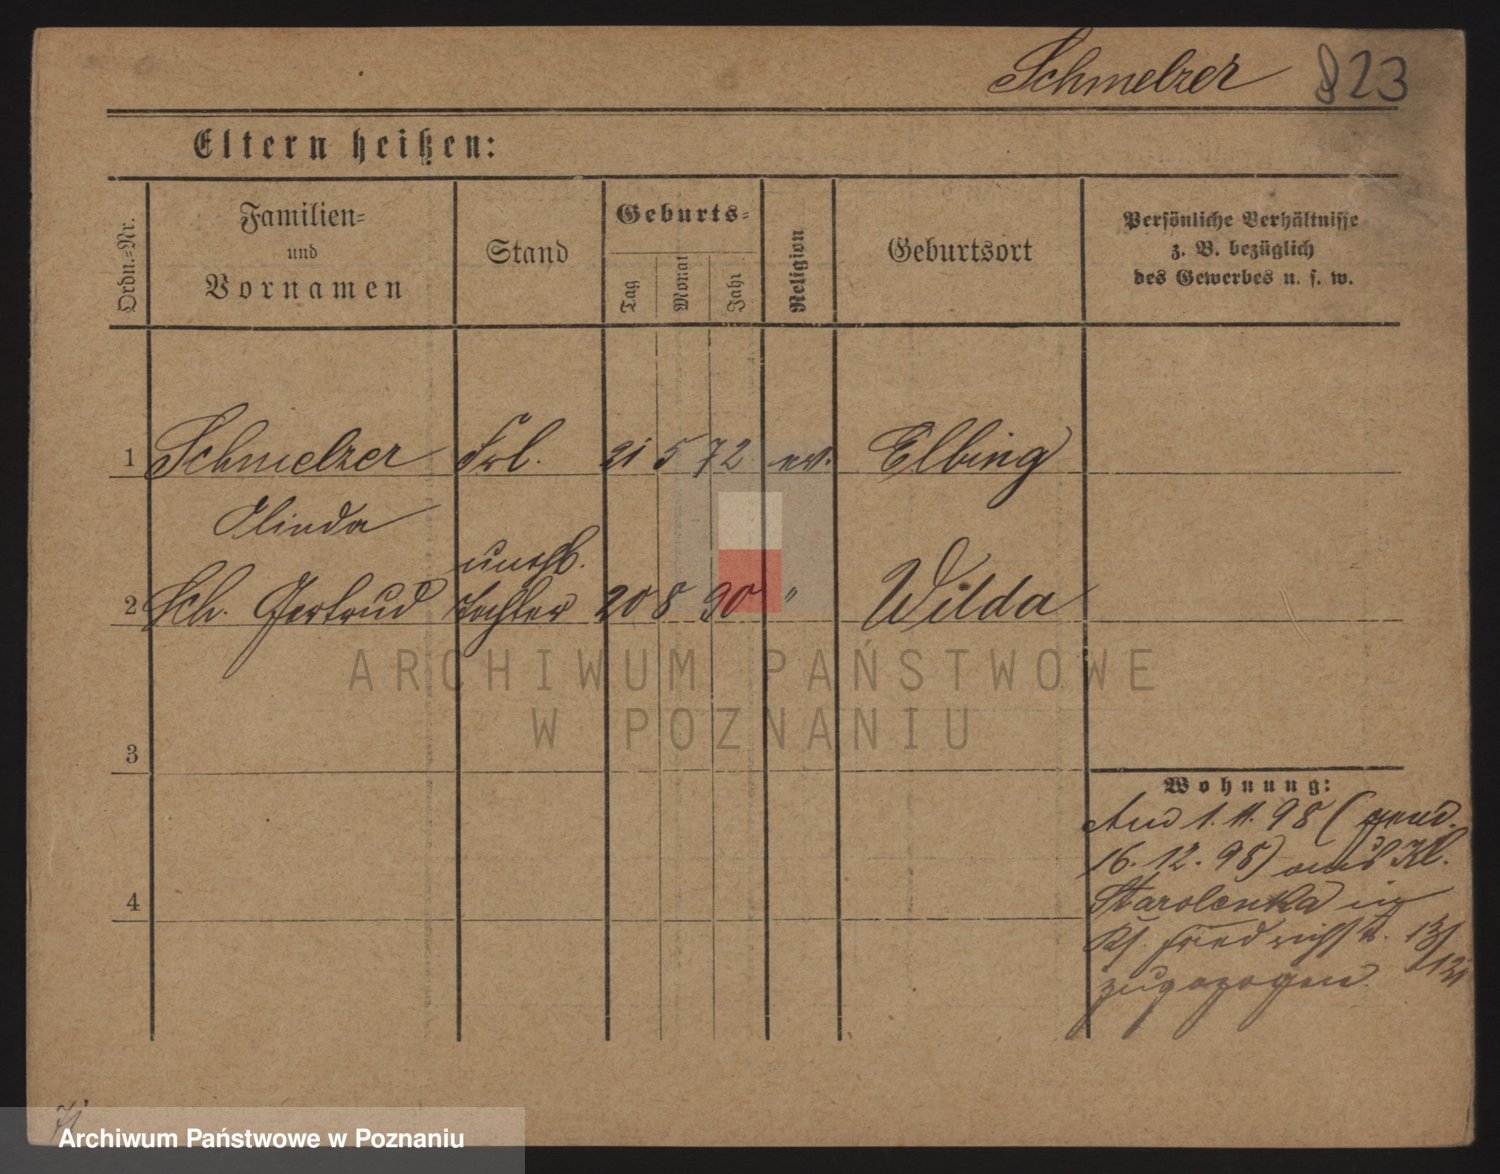 Schmelzer 823
Eltern heißen:
Ordn.-Nr.
Familien-
und
Vornamen
Stand
Geburts-
Tag
Monat
Jahr
Religion
Geburtsort
Persönliche Verhältnisse
z. B. bezüglich
des Gewerbes u. s. w.
1 Schmelzer Frl. 21 5 72 ev. Elbing
unehl.
2 Sch. Gertrud Tochter 20 8 90 " Wilda
ARCHIWUM PAŃSTWOWE
W POZNANIU
3
4
Wohnung:
Am 1. 11. 98 (
16. 12. 98) aus Kl.
Starolenka in
13/12
zugezogen.
71
Archiwum Państwowe w Poznaniu